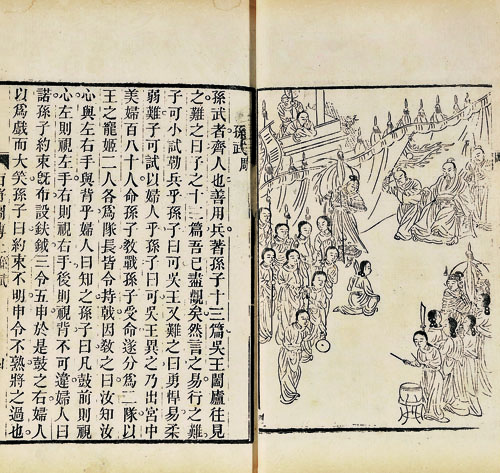 孫武 周
孫武者齊人也善用兵著孫子十三篇吳王闔廬往見
之難之曰子之十三篇吾已盡覩矣然言之易行之難
子可小試勒兵乎孫子曰可吳王又難之曰勇悍易柔
弱難子可試以婦人乎孫子曰可吳王異之乃出宮中
美婦百八十人命孫子敎戰孫子受命遂分爲二隊以
王之寵姬二人各爲隊長皆令持戟因敎之曰汝知汝
心與左右手與背乎婦人曰知之孫子曰凡鼓前則視
心左則視左手右則視右手後則視背不可違婦人曰
諾孫子約束旣布設鈇鉞三令五申於是鼓之右婦人
以爲戲而大笑孫子曰約束不明申令不熟將之過也